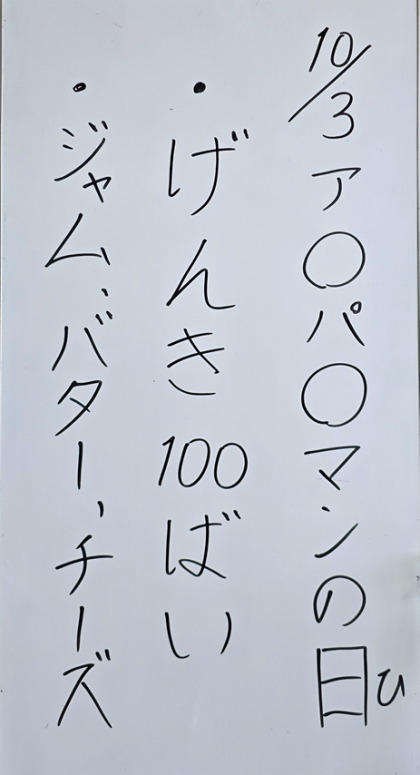 10/3ア〇パ〇マンの日ひ
・げんき100ばい
・ジャム、バター、チーズ